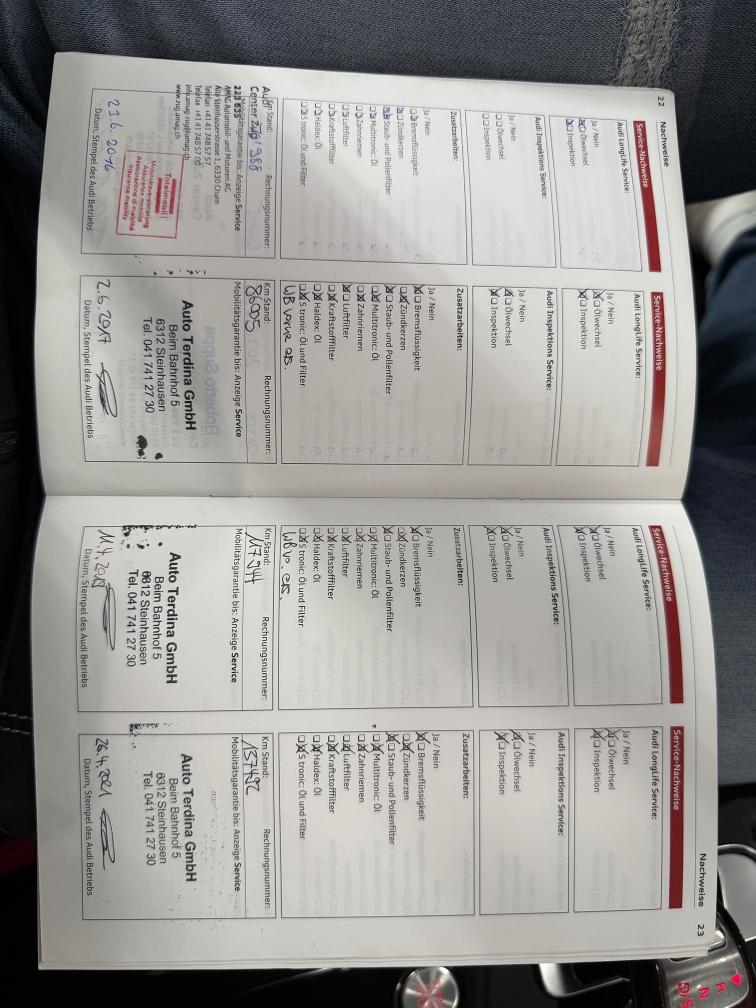 22 Nachweise
Service-Nachweise
Audi LongLife Service:
Ja / Nein
Ölwechsel
Inspektion
Audi Inspektions Service:
Ja / Nein
Ölwechsel
Inspektion
Zusatzarbeiten:
Ja / Nein
Bremsflüssigkeit
Zündkerzen
Staub- und Pollenfilter
Multitronic: Öl
Zahnriemen
Luftfilter
Kraftstofffilter
Haldex: Öl
S tronic: Öl und Filter
Km Stand: Rechnungsnummer:
Audi
Center Zug
Mobilitätsgarantie bis: Anzeige Service
AMAG Automobil- und Motoren AG
Alte Steinhauserstrasse 1, 6330 Cham
Telefon +41 41 748 57 57
Telefax +41 41 748 57 00
info.amag-zug@amag.ch
www.zug.amag.ch
Totalmobil!
Mobilitätsversicherung
Assurance mobilité
Assicurazione di mobilità
Insurance mobility
23.6.2016
Datum, Stempel des Audi Betriebs
Service-Nachweise
Audi LongLife Service:
Ja / Nein
Ölwechsel
Inspektion
Audi Inspektions Service:
Ja / Nein
Ölwechsel
Inspektion
Zusatzarbeiten:
Ja / Nein
Bremsflüssigkeit
Zündkerzen
Staub- und Pollenfilter
Multitronic: Öl
Zahnriemen
Luftfilter
Kraftstofffilter
Haldex: Öl
S tronic: Öl und Filter
Km Stand: Rechnungsnummer:
86005
Mobilitätsgarantie bis: Anzeige Service
Auto Terdina GmbH
Beim Bahnhof 5
6312 Steinhausen
Tel. 041 741 27 30
2.6.2017
Datum, Stempel des Audi Betriebs
Service-Nachweise
Audi LongLife Service:
Ja / Nein
Ölwechsel
Inspektion
Audi Inspektions Service:
Ja / Nein
Ölwechsel
Inspektion
Zusatzarbeiten:
Ja / Nein
Bremsflüssigkeit
Zündkerzen
Staub- und Pollenfilter
Multitronic: Öl
Zahnriemen
Luftfilter
Kraftstofffilter
Haldex: Öl
S tronic: Öl und Filter
Km Stand: Rechnungsnummer:
117944
Mobilitätsgarantie bis: Anzeige Service
Auto Terdina GmbH
Beim Bahnhof 5
6312 Steinhausen
Tel. 041 741 27 30
11.4.2019
Datum, Stempel des Audi Betriebs
Nachweise 23
Service-Nachweise
Audi LongLife Service:
Ja / Nein
Ölwechsel
Inspektion
Audi Inspektions Service:
Ja / Nein
Ölwechsel
Inspektion
Zusatzarbeiten:
Ja / Nein
Bremsflüssigkeit
Zündkerzen
Staub- und Pollenfilter
Multitronic: Öl
Zahnriemen
Luftfilter
Kraftstofffilter
Haldex: Öl
S tronic: Öl und Filter
Km Stand: Rechnungsnummer:
157492
Mobilitätsgarantie bis: Anzeige Service
Auto Terdina GmbH
Beim Bahnhof 5
6312 Steinhausen
Tel. 041 741 27 30
26.4.2021
Datum, Stempel des Audi Betriebs
R
N
D/S